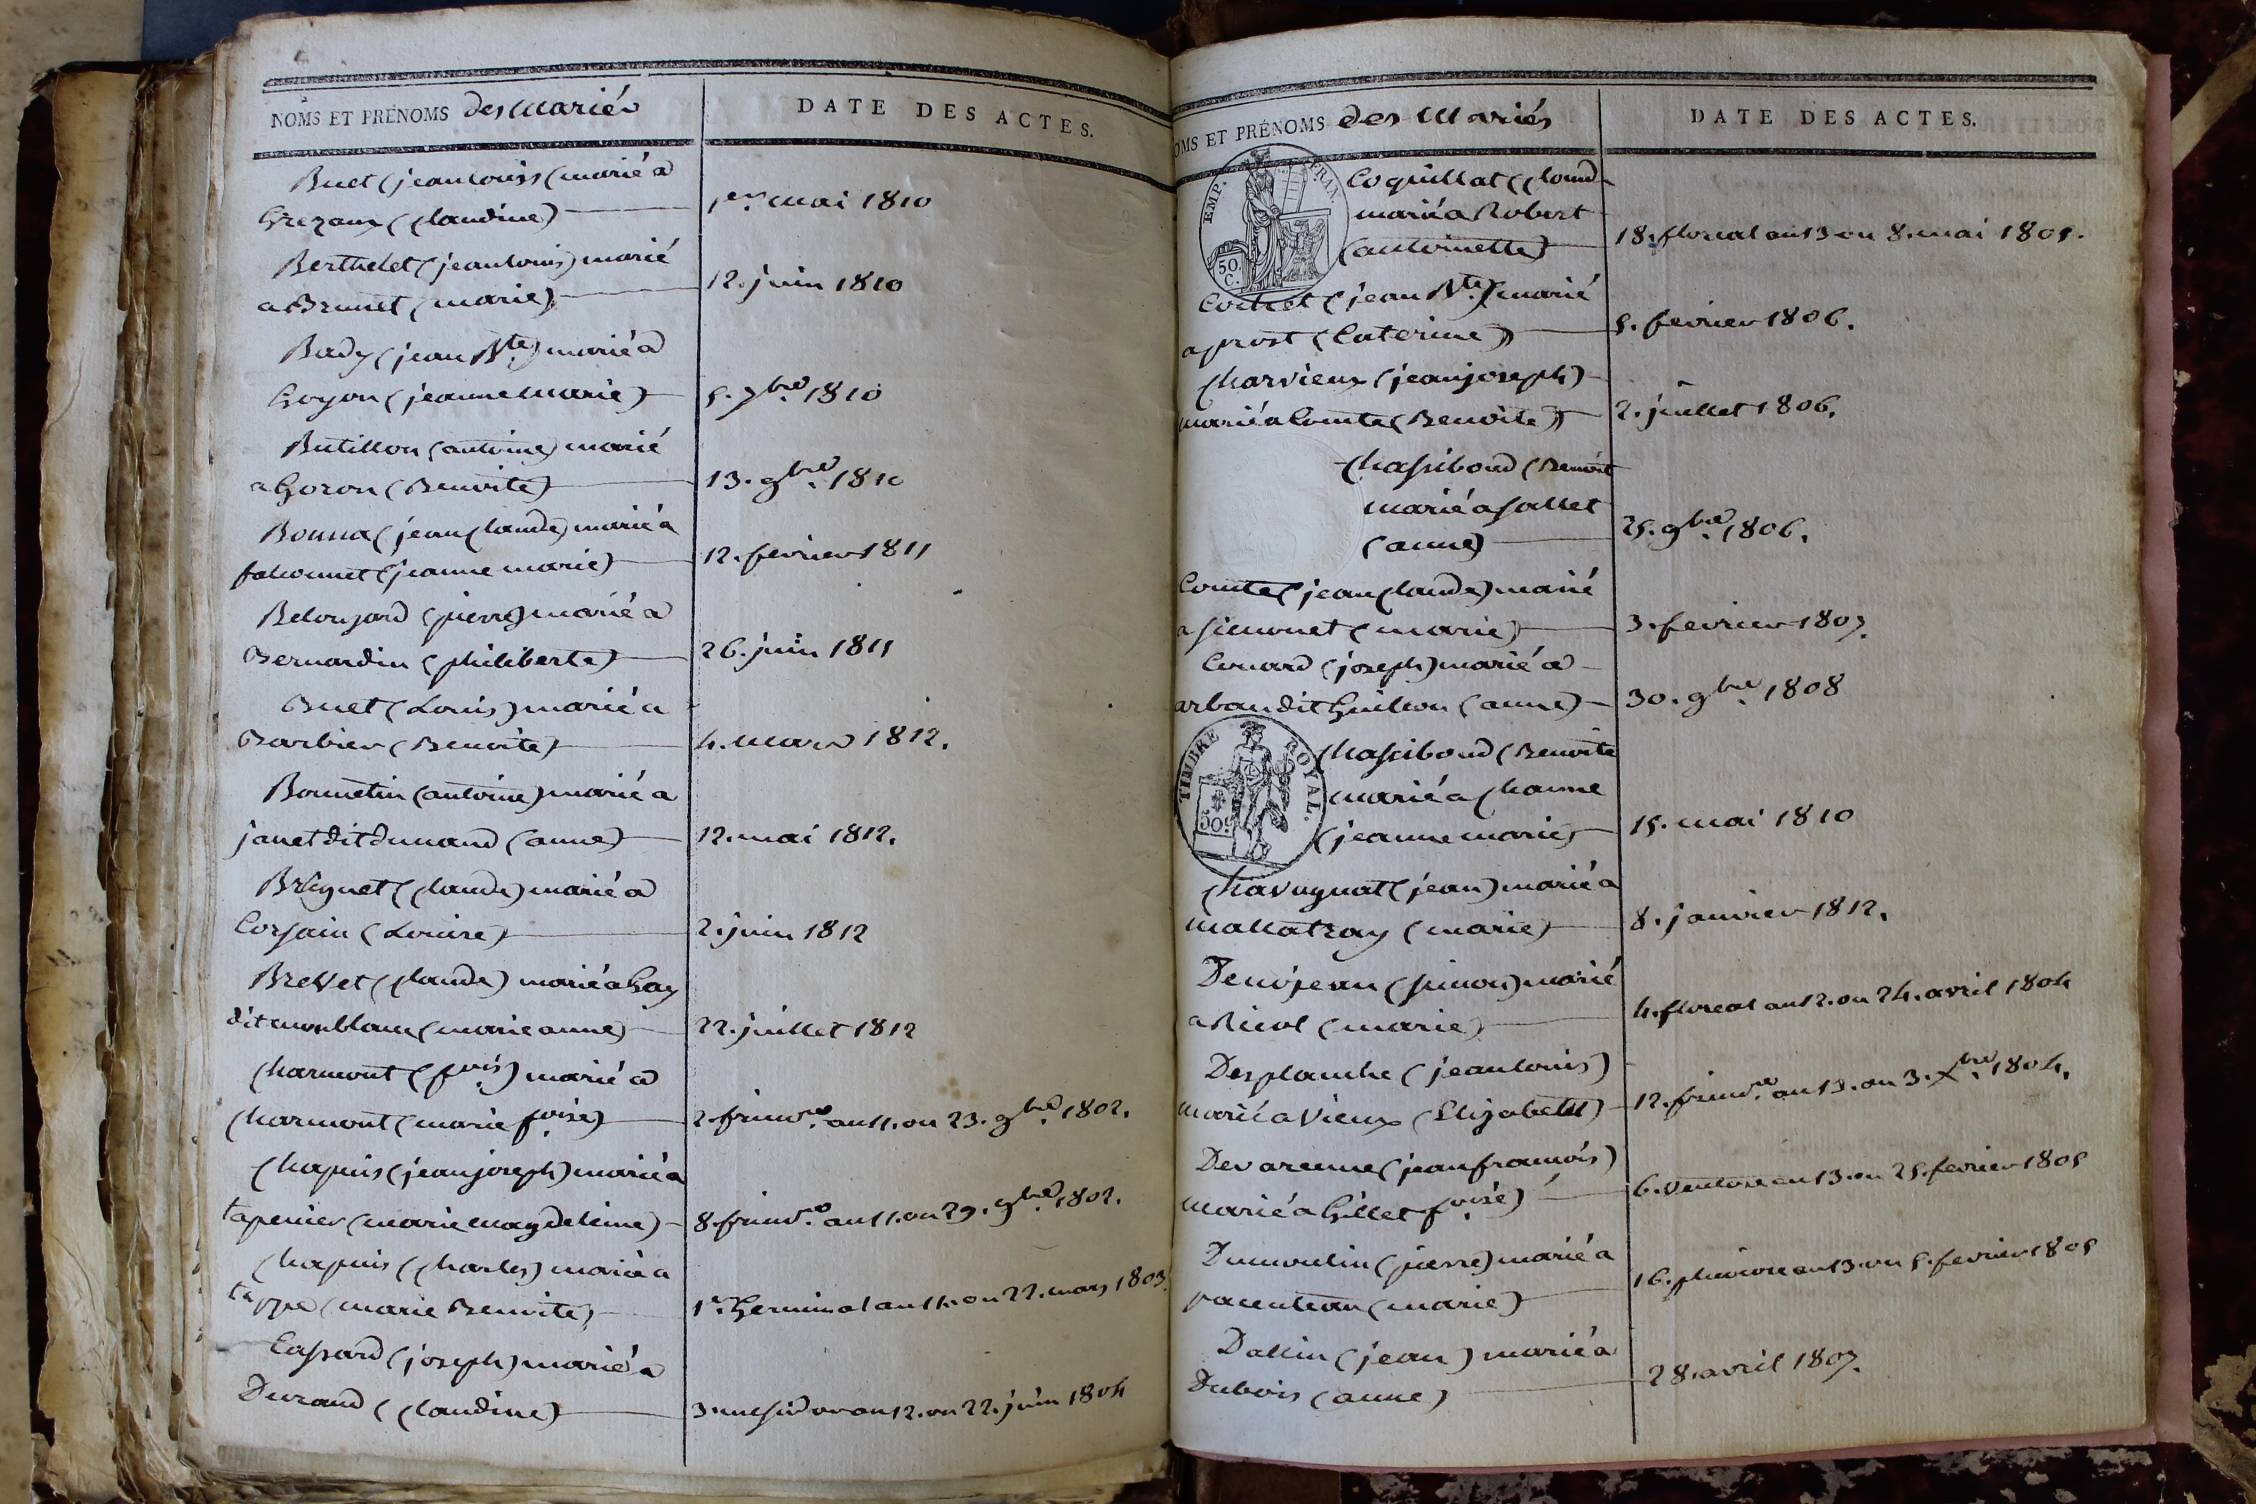 NOMS ET PRÉNOMS des Mariés
DATE DES ACTES.
Buet (jean louis (marié a
Grezaux (Claudine)
1er mai 1810
Berthelet (jean louis) marié
a Brunet (marie)
12. juin 1810
Bady (jean Bte) marié a
Goyon (jeanne marie)
5. 7bre 1810
Butillon (antoine) marié
a Goron (Benoite)
13. 9bre 1810
Bonna (jean Claude) marié a
falconnet (jeanne marie)
12. fevrier 1811
Belouzard (pierre) marié a
Bernardin (philiberte)
26. juin 1811
Buet (Louis) marié a
Barbier (Benoite)
4. mars 1812.
Bonnetin (antoine) marié a
janet dit dunand (anne)
12. mai 1812.
Briguet (Claude) marié a
Corsain (Louise)
2. juin 1812
Brevet (Claude) marié a Gay
dit monblanc (marie anne)
22. juillet 1812
Charmont (fois) marié a
Charmont (marie foise)
2. frimre an 11. ou 23. 9bre 1802.
Chapuis (jean joseph) marié a
tapenier (marie magdeleine)
8. frimre an 11. ou 29. 9bre 1802.
Chapuis (Charles) marié a
tappe (marie Benoite)
1er Germinal an 11. ou 22. mars 1803.
Cassard (joseph) marié a
Durand (Claudine)
3. messidor an 12. ou 22. juin 1804
OMS ET PRÉNOMS des Mariés
DATE DES ACTES.
EMP. FRAN.
50. C.
Coquillat (Claud
marié a Robert
(antoinette)
18. floreal an 13 ou 8. mai 1805.
Cottet (jean Bte) marié
a prost (Caterine)
5. fevrier 1806.
Charvieux (jean joseph)
marié a Comte (Benoite)
2. juillet 1806.
Chassiboud (Benoit
marié a sallet
(anne)
25. 9bre 1806.
Comte (jean Claude) marié
a simonet (marie)
3. fevrier 1807.
Convard (joseph) marié a
arban dit Guillon (anne)
30. 9bre 1808
TIMBRE ROYAL.
50c
Chassiboud (Benoite
marié a Channe
(jeanne marie)
15. mai 1810
Chavugnat (jean) marié a
mallatray (marie)
8. janvier 1812.
Denojean (simon) marié
a Riert (marie)
4. floreal an 12. ou 24. avril 1804
Desplanche (jean louis)
marié a Vieux (Elizabeth)
12. frimre an 13. ou 3. Xbre 1804.
Devarenne (jean francois)
marié a Gillet foise)
6. ventose an 13. ou 25. fevrier 1805
Dumoulin (pierre) marié a
(marie)
16. pluviose an 13. ou 5. fevrier 1805
Dallin (jean) marié a
Dubois (anne)
28. avril 1807.